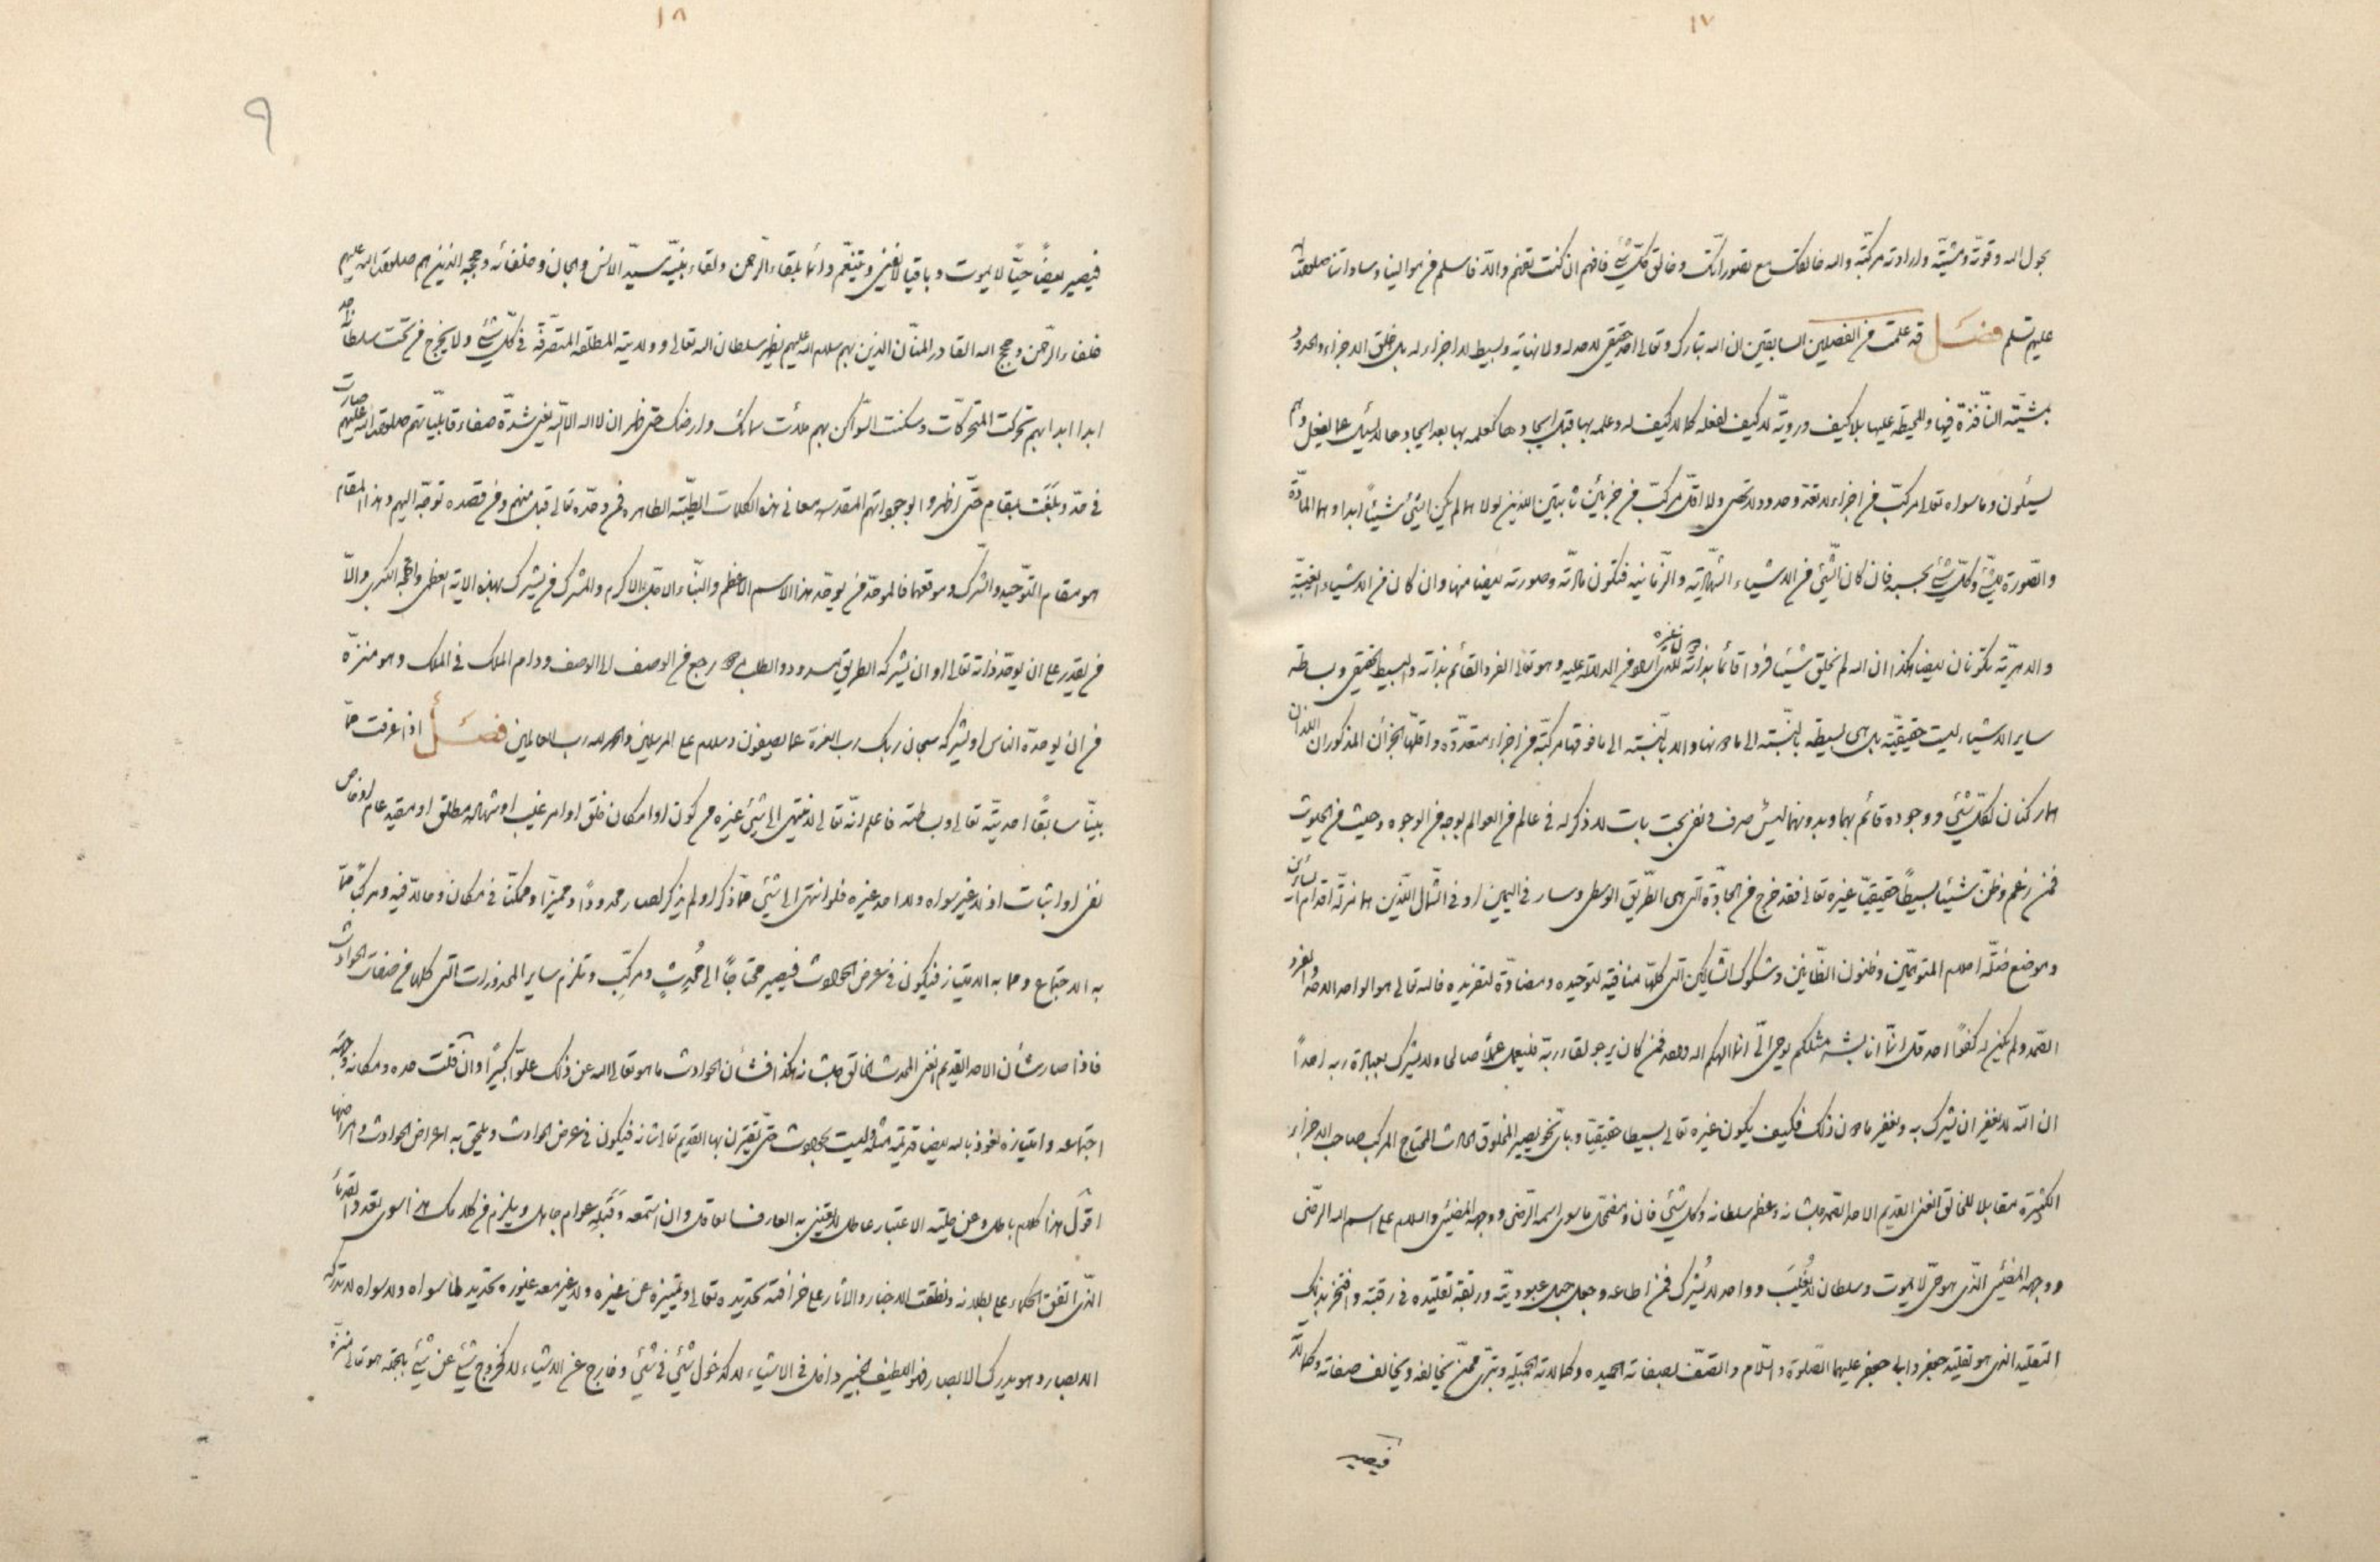 ١٧
بحول الله وقوته ومشيته وارادته مركبة والله خالقك مع تصوراتك وخالق كل شئ فافهم ان كنت تفهم والا فاسلم
عليهم تسلم فصل قد علمت من الفصلين السابقين ان الله تبارك وتعالى احد حقيقى لا حد له ولا نهاية وبسيط لا اجزاء له بل خلق الاجزاء والحدود
بمشيته النافذة فيها والمحيطة عليها بلا كيف وروية لا كيف لفعله كما لا كيف له وعلمه بها قبل ايجادها كعلمه بها بعد ايجادها لا يسئل عما يفعل وهم
يسئلون وما سواه تعالى مركب من اجزاء لا تعد وحدود لا تحصى ولا اقل مركب من جزئين ثابتين اللذين لولا هما لم يكن الشئ شيئا ابدا وهما المادة
والصورة لشئ وكل شئ بحسبه فان كان الشئ من الاشياء الشهادية والزمانية فتكون مادته وصورته ايضا منها وان كان من الاشياء الغيبية
والدهرية تكونان ايضا هكذا ان الله لم يخلق شيئا فردا قائما بذاته دون غيره للذى اراد من الدلالة عليه وهو تعالى الفرد القائم بذاته والبسيط الحقيقى وبساطة
ساير الاشياء ليست حقيقية بل هى بسيطة بالنسبة الى ما دونها والا بالنسبة الى ما فوقها مركبة من اجزاء متعددة واقلها الجزآن المذكوران اللذان
هما ركنان لكل شئ ووجوده قائم بهما وبدونهما ليس صرف ونفى بحت بات لا ذكر له فى عالم من العوالم بوجه من الوجوه وحيث من الحيوث
فمن زعم وظن شيئا بسيطا حقيقيا غيره تعالى فقد خرج من الجادة التى هى الطريق الوسطى وسار فى اليمين او فى الشمال اللذين هما مزلة اقدام السائرين
وموضع ضلة احلام المتوهمين وظنون الظانين وشكوك الشاكين التى كلها منافية لتوحيده ومضادة لتفريده فالله تعالى هو الواحد الاحد الفرد
الصمد ولم يكن له كفوا احد قل انما انا بشر مثلكم يوحى الى انما الهكم اله واحد فمن كان يرجو لقاء ربه فليعمل عملا صالحا ولا يشرك بعبادة ربه احدا
ان الله لا يغفر ان يشرك به ويغفر ما دون ذلك فكيف يكون غيره تعالى بسيطا حقيقيا وباى نحو يصير المخلوق الحادث المحتاج المركب صاحب الاجزاء
الكثيرة مقابلا للخالق الغنى القديم الاحد الصمد جل شانه وعظم سلطانه وكل شئ فان ومضمحل ما سوى اسمه الرضى ووجهه المضيئ والسلام على اسم الله الرضى
ووجهه المضيئ الذى هو حى لا يموت وسلطان لا يُغلَب وواحد لا يُشرك فمن اطاعه وجعل حبل عبوديته وربقة تقليده فى رقبته وافتخر بذلك
التقليد الذى هو تقليد جعفر وابى جعفر عليهما الصلوة والسلام واتصف بصفاته الحميده وكمالاته الجميلة وتبرى ممن يخالفه ويخالف صفاته وكمالاته
فيصير
١٨
٩
فيصير ايضا حيًّا لا يموت وباقيا لا يفنى ويتنعم دائما بلقاء الرحمن ولقاء نبيه سيد الانس والجان وخلفائه وحججه الذين هم صلوات الله عليهم
خلفاء الرحمن وحجج الله القادر المنان الذين بهم سلام الله عليهم يظهر سلطان الله تعالى وولايته المطلقة المتصرفة فى كل شئ ولا يخرج من تحت سلطانه
ابدا ابدا بهم تحركت المتحركات وسكنت السواكن بهم ملأت سمائك وارضك حتى ظهر ان لا اله الا انت يعنى شدة صفاء قابلياتهم صلوات الله عليهم صارت
فى حد وبلغت بمقام حتى اظهروا بوجوداتهم المقدسة معانى هذه الكلمات الطيبة الطاهره من وحده تعالى قبل منهم ومن قصده توجه اليهم وهذا المقام
هو مقام التوحيد والشرك وموقعهما فالموحد من يوحد هذا الاسم الاعظم والنبأ الاكرم والمشرك من يشرك بهذه الاية العظمى والحجة الكبرى والا
من يقدر على ان يوحد ذاته تعالى او ان يشركه الطريق مسدود والطلب مردود رجع من الوصف الى الوصف ودام الملك فى الملك وهو منزه
من ان يوحده الناس او يشركه سبحان ربك رب العزة عما يصفون وسلام على المرسلين والحمد لله رب العالمين فصل اذا عرفت مما
بينا سابقا احديته تعالى وبساطته فاعلم انه تعالى لا ينتهى الى شئ غيره من كون او امكان خلق او امر غيب او شهادة مطلق او مقيد عام او خاص
نفى او اثبات اذ لا غير سواه ولا احد غيره فلو انتهى الى شئ مما ذكر او لم يذكر لصار محدودا ومميزا وممكنا فى مكان وماله فيه ومركبا مما
به الاجتماع وما به الامتياز فيكون فى عرض الحوادث فيصير محتاجا الى مُحدِثٍ ومركِّبٍ وتلزم ساير المحذورات التى كلها من صفات الحوادث
فاذا صار شأن الاحد القديم الغنى المحدث الخالق جل شانه هكذا فشأن الحوادث ما هو تعالى الله عن ذلك علوا كبيرا وان قلت حده ومكانه وجهة
اجتماعه وامتيازه نعوذ بالله ايضا قديمة مثله وليست بحوادث حتى تقترن بها القديم تعالى شانه فيكون فى عرض الحوادث ويلحق به اعراض الحوادث وامراضها
اقول هذا كلام باطل وعن حلية الاعتبار عاطل لا يعتنى به العارف العاقل وان استمعه وقَبِلَه عوام جاهل ويلزم من كلامك هذا سوى تعدد القدماء
الذى اتفق الحكماء على بطلانه ونطقت الاخبار والآثار على خرافته تحديده تعالى وتميزه عن غيره ولا غير معه غيوره تحديد لما سواه ولا سواه لا تدركه
الابصار وهو يدرك الابصار وهو اللطيف الخبير داخل فى الاشياء لا كدخول شئ فى شئ وخارج عن الاشياء لا كخروج شئ عن شئ بالجملة هو تعالى منزه